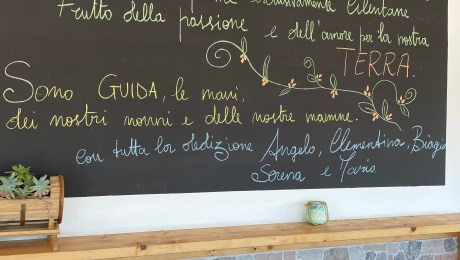 esclusivamente Cilentane
Frutto della passione e dell'amore per la nostra
TERRA.
Sono GUIDA, le mani,
dei nostri nonni e delle nostre mamme.
con tutta la dedizione Angelo, Clementina, Biagio
Serena e